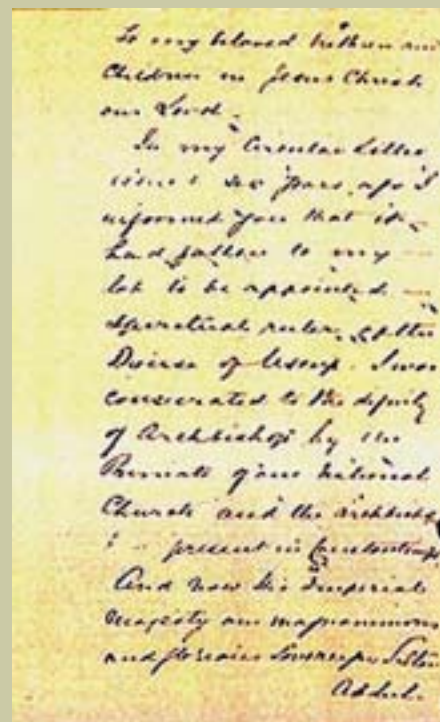 To my beloved brethren and
Children in Jesus Christ
our Lord.
In my Circular Letter
six years ago I
informed you that it
had fallen to my
lot to be appointed
spiritual ruler of the
Diocese of . I was
consecrated to the dignity
of Archbishop by the
Primate of our National
Church and the
present in
And now his Imperial
Majesty our magnanimous
and glorious Sovereign Sultan
Abdul